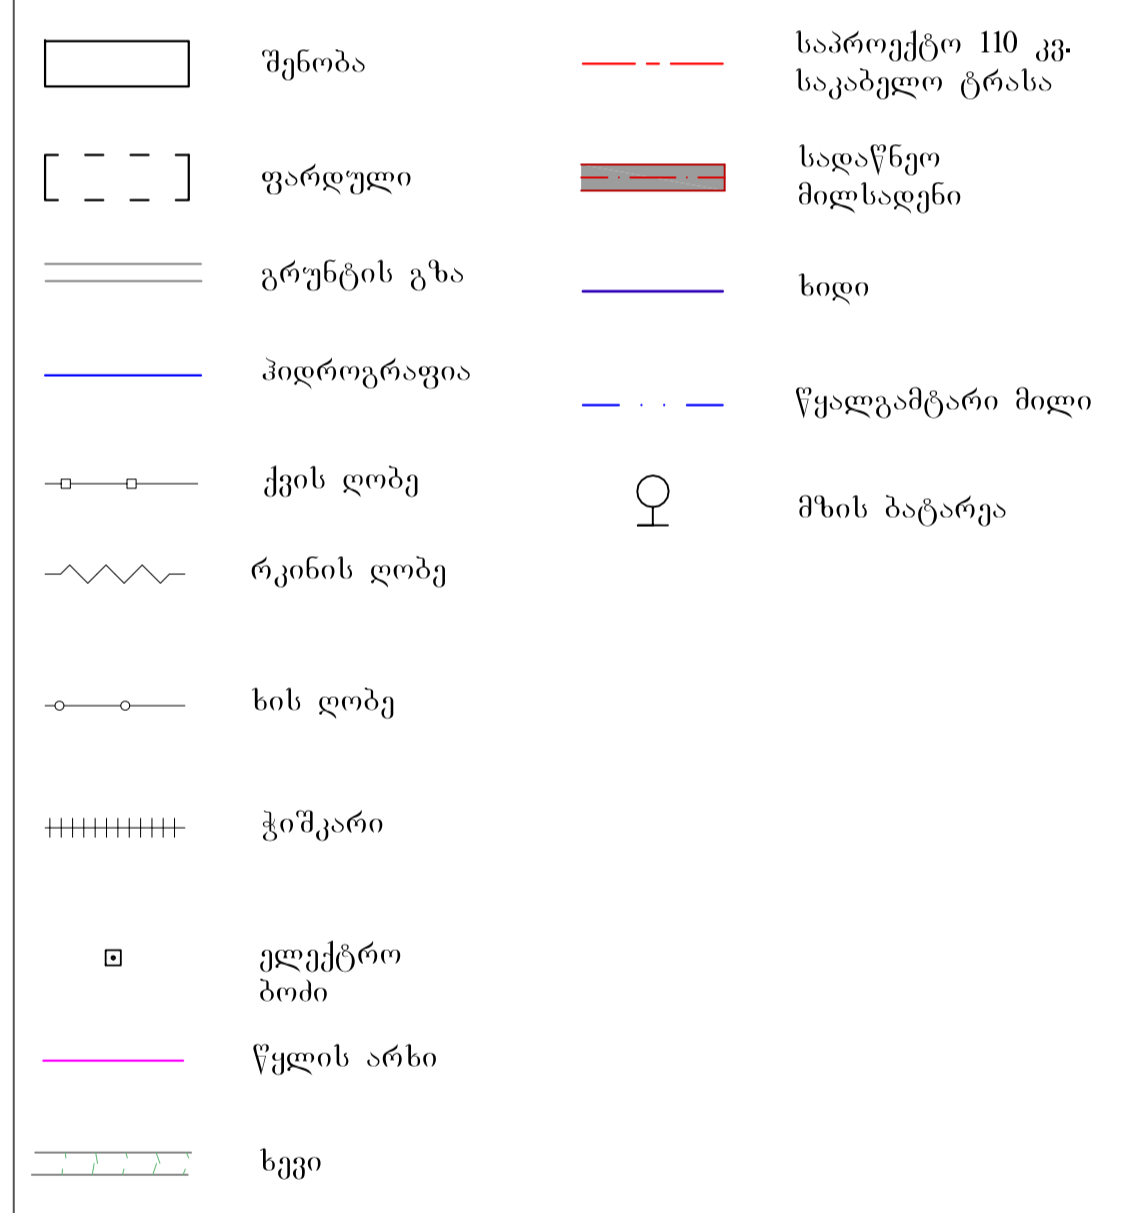 შენობა
ფარდული
გრუნტის გზა
ჰიდროგრაფია
ქვის ღობე
რკინის ღობე
ხის ღობე
ჭიშკარი
ელექტრო
ბოძი
წყლის არხი
ხევი
საპროექტო 110 კვ.
საკაბელო ტრასა
სადაწნეო
მილსადენი
ხიდი
წყალგამტარი მილი
მზის ბატარეა